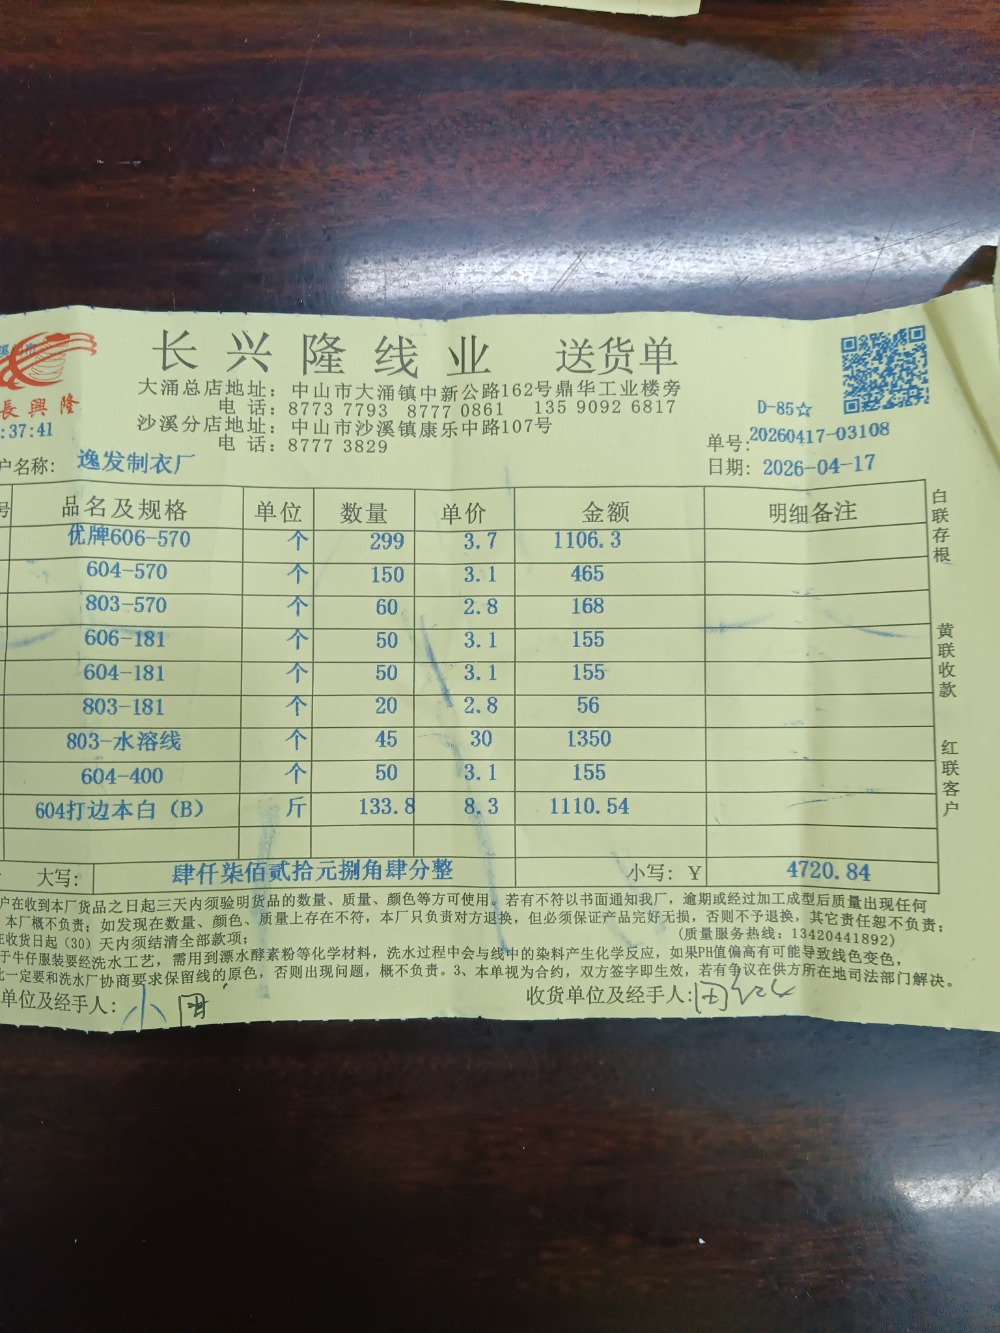 长兴隆线业 送货单
長興隆
大涌总店地址：中山市大涌镇中新公路162号鼎华工业楼旁
电 话：8773 7793 8770 0861 135 9092 6817
沙溪分店地址：中山市沙溪镇康乐中路107号
电 话：8777 3829
D-85☆
:37:41
单号:20260417-03108
户名称: 逸发制衣厂
日期: 2026-04-17
号 品名及规格 单位 数量 单价 金额 明细备注
优牌606-570 个 299 3.7 1106.3
604-570 个 150 3.1 465
803-570 个 60 2.8 168
606-181 个 50 3.1 155
604-181 个 50 3.1 155
803-181 个 20 2.8 56
803-水溶线 个 45 30 1350
604-400 个 50 3.1 155
604打边本白（B） 斤 133.8 8.3 1110.54
大写: 肆仟柒佰贰拾元捌角肆分整 小写: Y 4720.84
白联存根
黄联收款
红联客户
户在收到本厂货品之日起三天内须验明货品的数量、质量、颜色等方可使用。若有不符以书面通知我厂，逾期或经过加工成型后质量出现任何
本厂概不负责；如发现在数量、颜色、质量上存在不符，本厂只负责对方退换，但必须保证产品完好无损，否则不予退换，其它责任恕不负责；
在收货日起（30）天内须结清全部款项； (质量服务热线：13420441892)
于牛仔服装要经洗水工艺，需用到漂水酵素粉等化学材料，洗水过程中会与线中的染料产生化学反应，如果PH值偏高有可能导致线色变色，
此一定要和洗水厂协商要求保留线的原色，否则出现问题，概不负责。3、本单视为合约，双方签字即生效，若有争议在供方所在地司法部门解决。
单位及经手人: 小 收货单位及经手人: